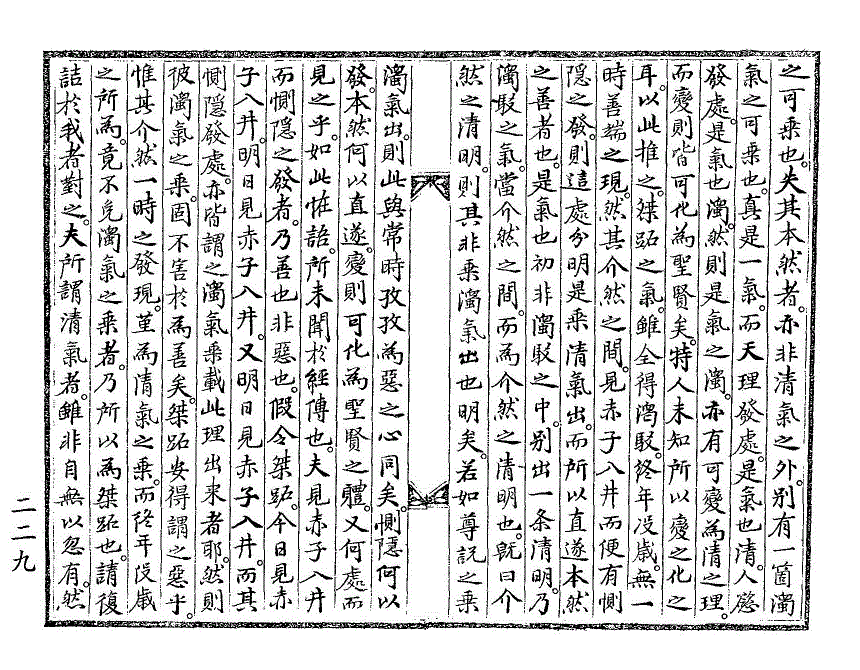 之可乘也。失其本然者。亦非清氣之外。別有一箇濁
氣之可乘也。真是一氣。而天理發處。是氣也清。人慾
發處。是氣也濁。然則是氣之濁。亦有可變爲清之理。
而變則皆可化爲聖賢矣。特人未知所以變之化之
耳。以此推之。桀跖之氣。雖全得濁駁。終年沒歲。無一
時善端之現。然其介然之間。見赤子入井而便有惻
隱之發。則這處分明是乘清氣出。而所以直遂本然
之善者也。是氣也初非濁駁之中。別出一条清明。乃
濁駁之氣。當介然之間。而爲介然之清明也。旣曰介
然之清明。則其非乘濁氣出也明矣。若如尊說之乘
濁氣出。則此與常時孜孜爲惡之心同矣。惻隱何以
發。本然何以直遂。變則可化爲聖賢之體。又何處而
見之乎。如此恠詒。所未聞於經傳也。夫見赤子入井
而惻隱之發者。乃善也非惡也。假令桀跖。今日見赤
子入井。明日見赤子入井。又明日見赤子入井。而其
惻隱發處。亦皆謂之濁氣乘載此理出來者耶。然則
彼濁氣之乘。固不害於爲善矣。桀跖安得謂之惡乎。
惟其介然一時之發現。堇爲清氣之乘。而終年沒歲
之所爲。竟不免濁氣之乘者。乃所以爲桀跖也。請復
詰於我者對之。夫所謂清氣者。雖非自無以忽有。然
二二九